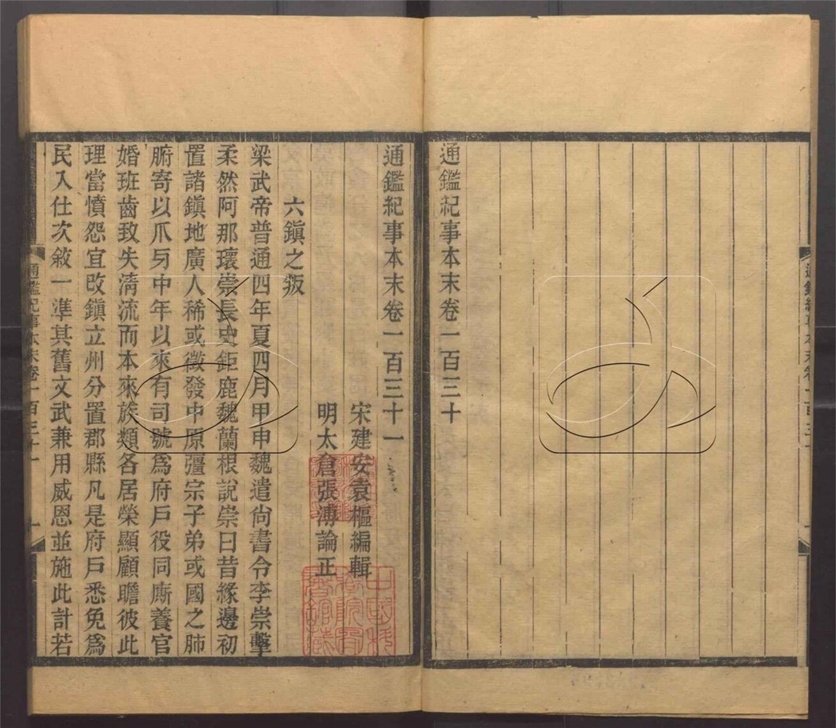 通鑑紀事本末卷一百三十
通鑑紀事本末卷一百三十一
宋建安袁樞編輯
明太倉張溥論正
六鎮之叛
梁武帝普通四年夏四月甲申魏遣尚書令李崇擊
柔然阿那瓌崇長史鉅鹿魏蘭根說崇曰昔緣邊初
置諸鎮地廣人稀或徵發中原彊宗子弟或國之肺
腑寄以爪牙中年以來有司號爲府戶役同廝養官
婚班齒致失清流而本來族類各居榮顯顧瞻彼此
理當憤怨宜改鎮立州分置郡縣凡是府戶悉免爲
民入仕次敘一準其舊文武兼用威恩並施此計若
通鑑紀事本末卷一百三十一